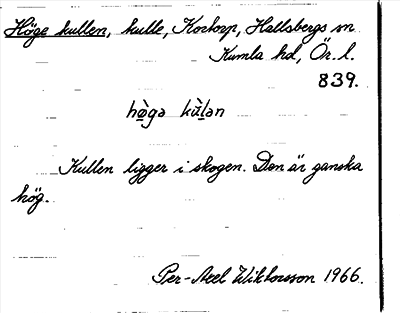 Höge kullen, kulle, Kortorp, Hallsbergs sn
Kumla hd, Ör. l.
839.
hø̀gə kù̱lən
Kullen ligger i skogen. Den är ganska
hög.
Per-Axel Wiktorsson 1966.